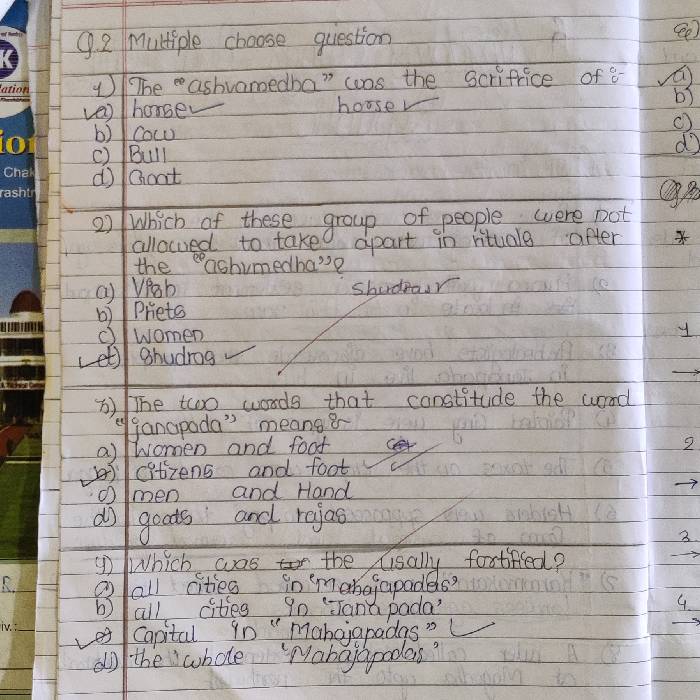 Q.2 Multiple choose question
1) The "ashvamedha" was the Scrifrice of :-
a) horse horse
b) Cow
c) Bull
d) Goat
2) Which of these group of people were not
allowed to take apart in rituals after
the "ashvmedha"?
a) Vish
b) Priets
c) Women
d) Shudras
3) The two words that constitude the word
"janapada" means :-
a) women and foot
b) citizens and foot
c) men and Hand
d) goods and rajas
4) Which was the usally fortified?
a) all cities in 'Mahajapadas'
b) all cities in 'Janapada'
c) Capital in "Mahajapadas"
d) the whole 'Mahajapadas'